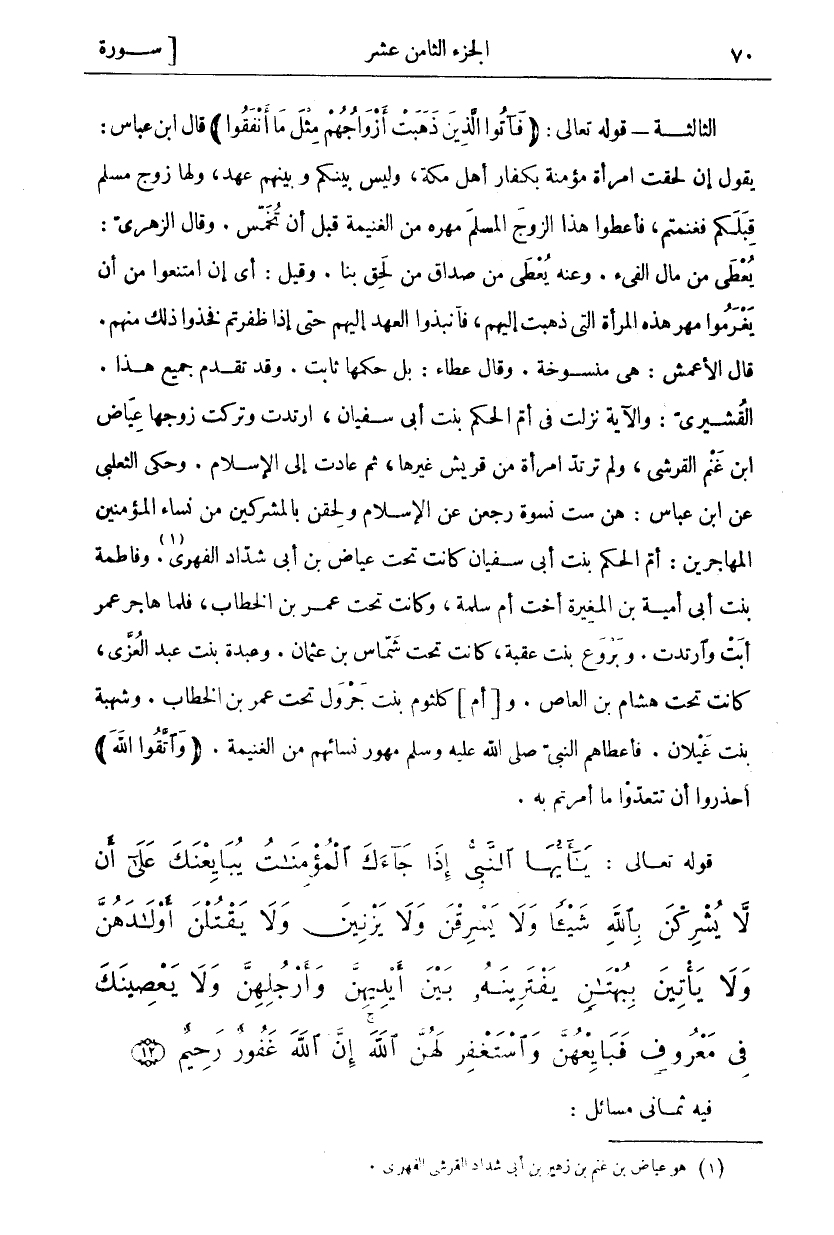 ٧٠ الجزء الثامن عشر [ سورة
الثالثة — قوله تعالى : ﴿ فَآتُوا الَّذِينَ ذَهَبَتْ أَزْوَاجُهُمْ مِثْلَ مَا أَنْفَقُوا ﴾ قال ابن عباس :
يقول إن لحقت امرأة مؤمنة بكفار أهل مكة، وليس بينكم وبينهم عهد، ولها زوج مسلم
قِبَلَكم فغنمتم، فأعطوا هذا الزوجَ المسلمَ مهره من الغنيمة قبل أن تُخَمَّس . وقال الزهرىّ :
يُعْطَى من مال الفىء . وعنه يُعْطَى من صداق من لَحِق بنا . وقيل : أى إن امتنعوا من أن
يَغْرَمُوا مهر هذه المرأة التى ذهبت إليهم، فآنبذوا العهد إليهم حتى إذا ظفرتم فخذوا ذلك منهم.
قال الأعمش : هى منسوخة . وقال عطاء : بل حكمها ثابت . وقد تقدم جميع هذا .
القُشيرىّ : والآية نزلت فى أمّ الحكم بنت أبى سفيان ، ارتدت وتركت زوجها عِيَاض
ابن غَنْم القرشى ، ولم ترتدّ امرأة من قريش غيرها، ثم عادت إلى الإسلام . وحكى الثعلبى
عن ابن عباس : هن ست نسوة رجعن عن الإسلام ولحقن بالمشركين من نساء المؤمنين
المهاجرين : أمّ الحكم بنت أبى سفيان كانت تحت عياض بن أبى شدّاد الفهرى(١). وفاطمة
بنت أبى أمية بن المغيرة أخت أم سلمة ، وكانت تحت عمر بن الخطاب، فلما هاجر عمر
أبَتْ وآرتدت . وبَرْوَع بنت عقبة، كانت تحت شَمَّاس بن عثمان . وعبدة بنت عبد العُزَّى،
كانت تحت هشام بن العاص . و[أم] كلثوم بنت جَرْوَل تحت عمر بن الخطاب . وشهبة
بنت غَيْلان . فأعطاهم النبىّ صلى الله عليه وسلم مهور نسائهم من الغنيمة . ﴿ وَآتَّقُوا اللهَ ﴾
آحذروا أن تتعدّوْا ما أمرتم به .
قوله تعالى : يَٰٓأَيُّهَا ٱلنَّبِىُّ إِذَا جَآءَكَ ٱلْمُؤْمِنَٰتُ يُبَايِعْنَكَ عَلَىٰٓ أَن
لَّا يُشْرِكْنَ بِٱللَّهِ شَيْـًٔا وَلَا يَسْرِقْنَ وَلَا يَزْنِينَ وَلَا يَقْتُلْنَ أَوْلَٰدَهُنَّ
وَلَا يَأْتِينَ بِبُهْتَٰنٍ يَفْتَرِينَهُۥ بَيْنَ أَيْدِيهِنَّ وَأَرْجُلِهِنَّ وَلَا يَعْصِينَكَ
فِى مَعْرُوفٍ فَبَايِعْهُنَّ وَٱسْتَغْفِرْ لَهُنَّ ٱللَّهَ إِنَّ ٱللَّهَ غَفُورٌ رَّحِيمٌ ۝١٢
فيه ثمانى مسائل :
(١) هو عياض بن غنم بن زهير بن أبى شداد القرشى الفهرى .